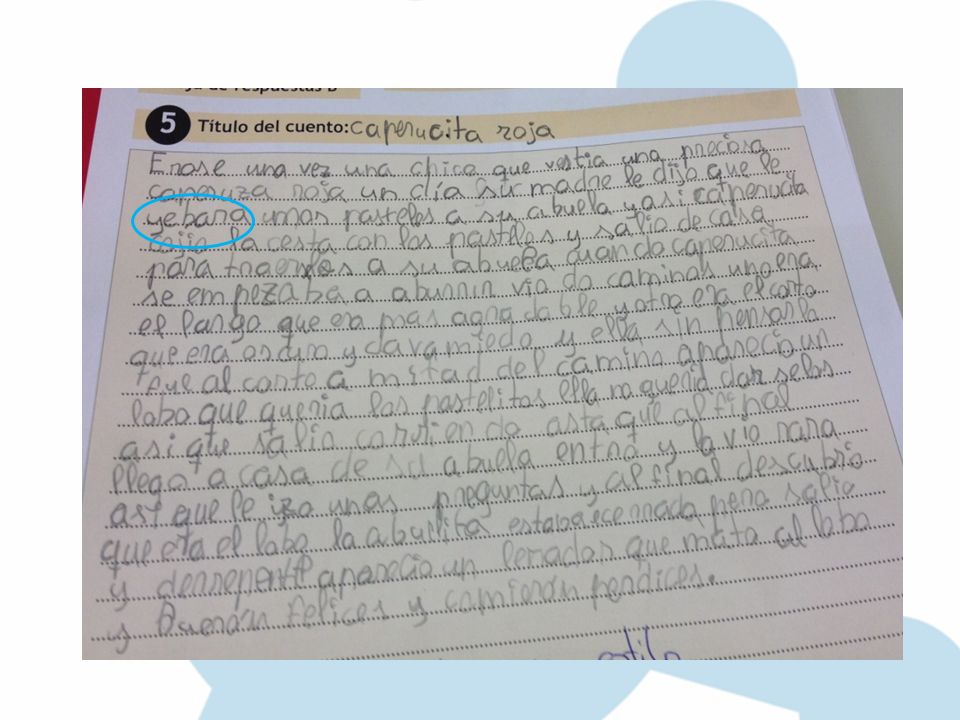 5 Título del cuento: caperucita roja
Erase una vez una chica que vestia una preciosa
caperuza roja un día su madre le dijo que le
yebara unos pasteles a su abuela y asi caperucita
cojio la cesta con los pasteles y salio de casa
para traerlos a su abuela cuando caperucita
se empezaba a aburrir vio do caminos uno era
el largo que era mas agradable y otro era el corto
que era oscuro y dava miedo y ella sin pensarlo
fue al corto a mitad del camino aparecio un
lobo que queria los pastelitos ella no queria dar selos
asi que salio corriendo asta que al final
llego a casa de su abuela entró y la vio rara
asi que le izo unas preguntas y al final descubrio
que era el lobo la abuilita estaba ecerrada pero salio
y derrepente aparecio un leñador que mata al lobo
y fueron felices y comieron perdices.
estilo